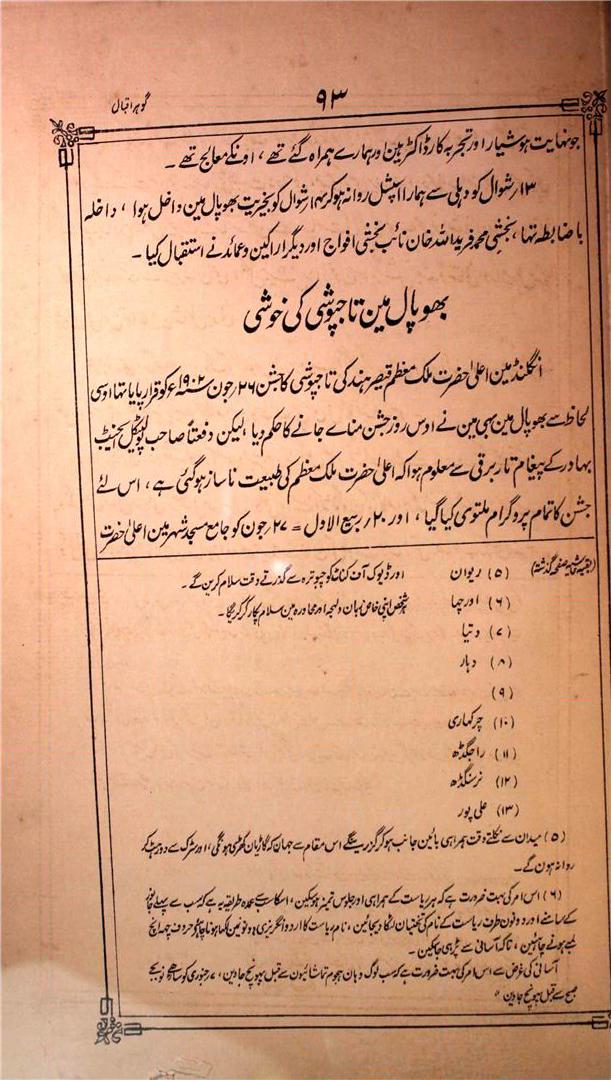 ۹۳
گوہر اقبال
جو نہایت ہوشیار اور تجربہ کار ڈاکٹر ہین اور ہمارے ہمراہ گئے تھے ، اونکے معالج تھے ۔
۱۳؍ شوال کو دہلی سے ہمارا اسپشل روانہ ہو کر ۱۴؍ شوال کو بخیریت بھوپال مین داخل ہوا ، داخلہ
باضابطہ تھا ، بخشی محمد فرید اللہ خان نائب بخشی افواج اور دیگر اراکین و عمائد نے استقبال کیا ۔
بھوپال مین تاجپوشی کی خوشی
انگلنڈ مین اعلیٰ حضرت ملک معظم قیصر ہند کی تاجپوشی کا جشن ۲۶؍ جون سنہ ۱۹۰۲ء کو قرار پایا تہا اوسی
لحاظ سے بھوپال مین بہی مین نے اوس روز جشن مناے جانے کا حکم دیا ، لیکن دفعتاً صاحب پولیٹکل ایجنٹ
بہادر کے پیغام تار برقی سے معلوم ہوا کہ اعلیٰ حضرت ملک معظم کی طبیعت ناساز ہو گئی ہے ، اس لئے
جشن کا تمام پروگرام ملتوی کیا گیا ، اور ۲۰؍ ربیع الاول = ۲۷؍ جون کو جامع مسجد شہر مین اعلیٰ حضرت
(بقیہ حاشیہ صفحہ گذشتہ) (۵) ریوان اور ڈیوک آف کناٹ کو چبوترہ سے گذرتے وقت سلام کرین گے ۔
(۶) اورچہا ہر شخص اپنی خاص زبان و لہجہ اور محاورہ مین سلام پکار کر کریگا ۔
(۷) دتیا
(۸) دہار
(۹)
(۱۰) چرکہاری
(۱۱) راجگڈھ
(۱۲) نرسنگڈھ
(۱۳) علی پور
(۵) میدان سے نکلتے وقت ہمراہی بائین جانب ہو کر گزرینگے اس مقام سے جہان کہ گاڑیان کھڑی ہونگی ، اور سڑک سے دور ہٹ کر
روانہ ہون گے ۔
(۶) اس امر کی بہت ضرورت ہے کہ ہر ریاست کے ہمراہی اور جلوس تمیز ہو سکین ، اسکا سب سے عمدہ طریقہ یہ ہے کہ سب سے پہلے
کے سامنے اور دونون طرف ریاست کے نام کی تختیان لٹکا دیجائین ، نام ریاست کا اردو انگریزی دونون مین لکہا ہونا چاہئے حروف چھہ انچ
لمبے ہونے چاہئین ، تاکہ آسانی سے پڑہی جا سکین ۔
آسانی کی غرض سے اس امر کی بہت ضرورت ہے کہ سب لوگ وہان ہجوم تماشائیون سے قبل پہونچ جاوین ، ۷؍ جنوری کو ساڑھے نو بجے
صبح سے قبل پہونچ جاوین